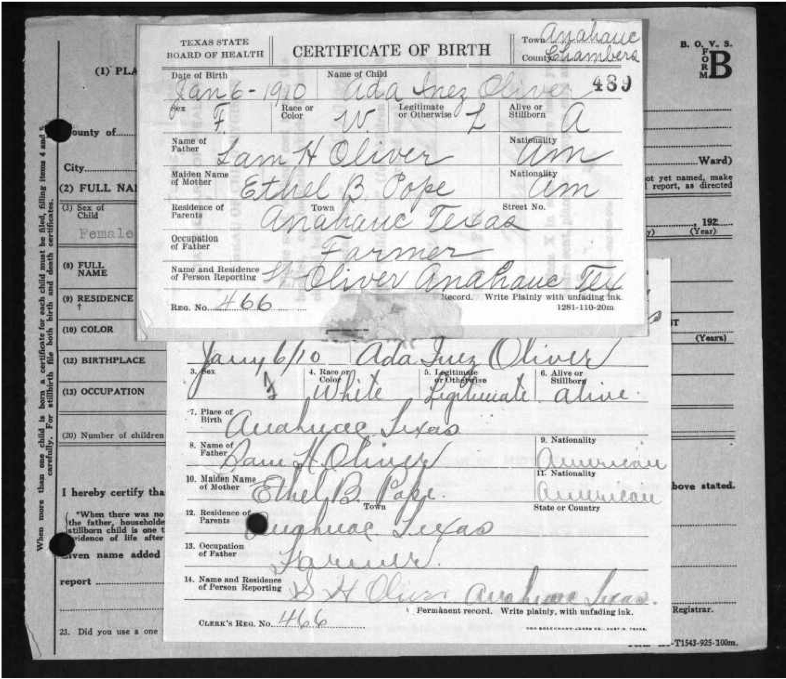 TEXAS STATE BOARD OF HEALTH
CERTIFICATE OF BIRTH
Town Anahauc
County Chambers
B. O. V. S.
FORM B
(1) PLA
Date of Birth Name of Child
Jan 6-1910 Ada Inez Oliver 489
Sex F. Race or Color W. Legitimate or Otherwise L Alive or Stillborn A
County of
Name of Father Sam H Oliver Nationality Am
City Ward)
Maiden Name of Mother Ethel B. Pope Nationality Am
ot yet named, make
l report, as directed
(2) FULL NAM
Residence of Parents Town Street No.
Anahauc Texas
(3) Sex of Child
Female
192
(Year)
Occupation of Father Farmer
(8) FULL NAME
Name and Residence of Person Reporting Oliver Anahauc Tex
(9) RESIDENCE
REG. No. 466 Record. Write Plainly with unfading ink.
1281-110-20m
(10) COLOR
(Years)
Jany 6/10 Ada Inez Oliver
(12) BIRTHPLACE
3. Sex f 4. Race or Color White 5. Legitimate or Otherwise Legitimate 6. Alive or Stillborn alive
(13) OCCUPATION
7. Place of Birth Anahuac Texas
(20) Number of children
8. Name of Father Sam H Oliver 9. Nationality American
10. Maiden Name of Mother Ethel B. Pope 11. Nationality American
I hereby certify tha
bove stated.
12. Residence of Parents Town State or Country
Anahuac Texas
*When there was no
the father, householde
stillborn child is one t
vidence of life after
13. Occupation of Father Farmer.
Given name added
14. Name and Residence of Person Reporting S H Oliver Anahuac Texas.
report
Permanent record. Write plainly, with unfading ink.
Registrar.
CLERK'S REG. No. 466
23. Did you use a one
-T1543-925-100m.
When more than one child is born a certificate for each child must be filed, filling items 4 and 5
carefully. For stillbirth file both birth and death certificates.